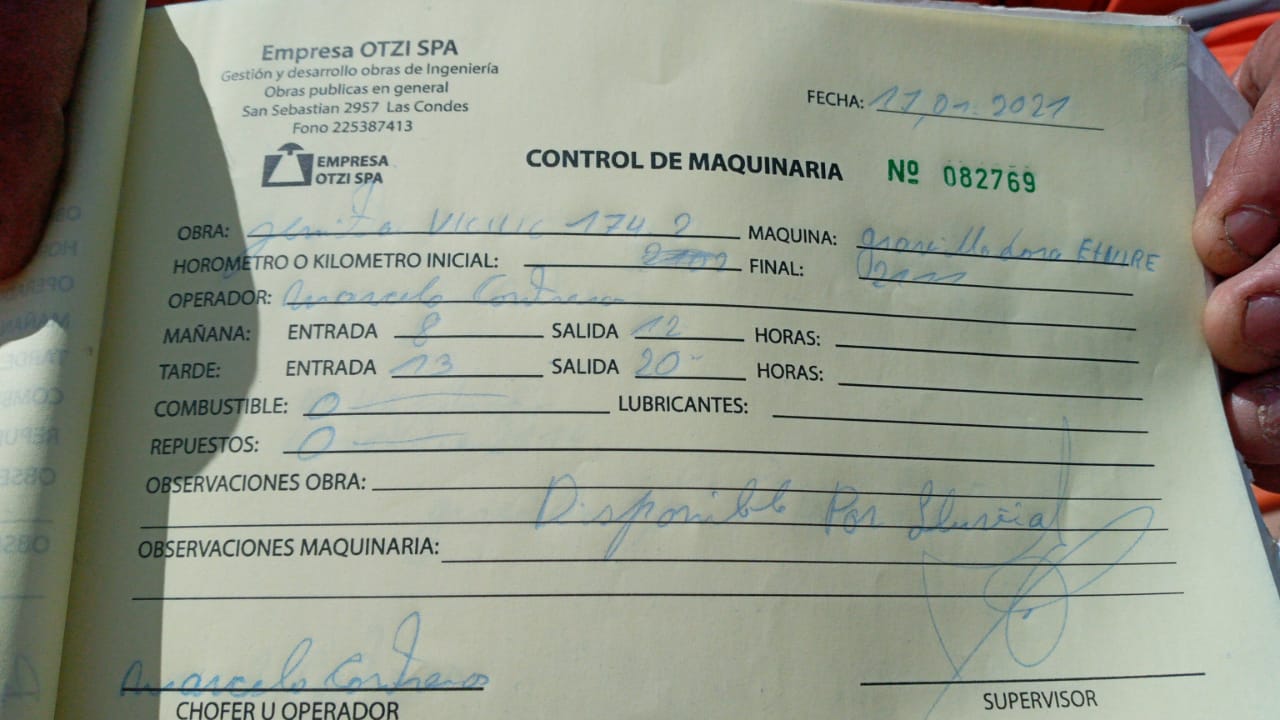 Empresa OTZI SPA
Gestión y desarrollo obras de Ingeniería
Obras publicas en general
San Sebastian 2957 Las Condes
Fono 225387413
EMPRESA
OTZI SPA
FECHA: 11,01.2021
CONTROL DE MAQUINARIA Nº 082769
OBRA: 174 2 MAQUINA: gravilladora
HOROMETRO O KILOMETRO INICIAL: FINAL:
OPERADOR: Marcelo Contreras
MAÑANA: ENTRADA 8 SALIDA 12 HORAS:
TARDE: ENTRADA 13 SALIDA 20 HORAS:
COMBUSTIBLE: 0 LUBRICANTES:
REPUESTOS: 0
OBSERVACIONES OBRA:
Disponible Por lluvia
OBSERVACIONES MAQUINARIA:
Marcelo Contreras
CHOFER U OPERADOR
SUPERVISOR